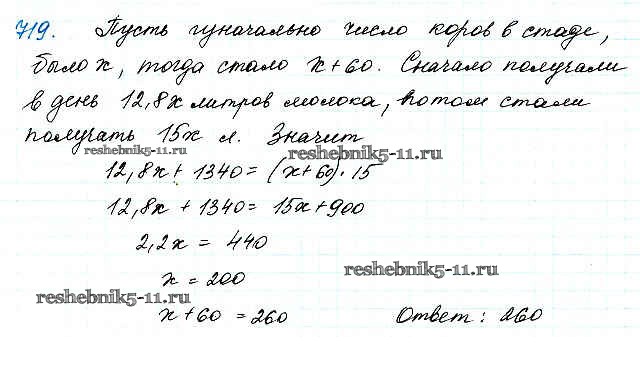 719. Пусть изначально число коров в стаде,
было x, тогда стало x+60. Сначало получали
в день 12,8x литров молока, потом стали
получать 15x л. Значит
reshebnik5-11.ru
reshebnik5-11.ru
12,8x + 1340 = (x+60)·15
12,8x + 1340 = 15x+900
2,2x = 440
reshebnik5-11.ru
x = 200
reshebnik5-11.ru
x+60 = 260 Ответ: 260